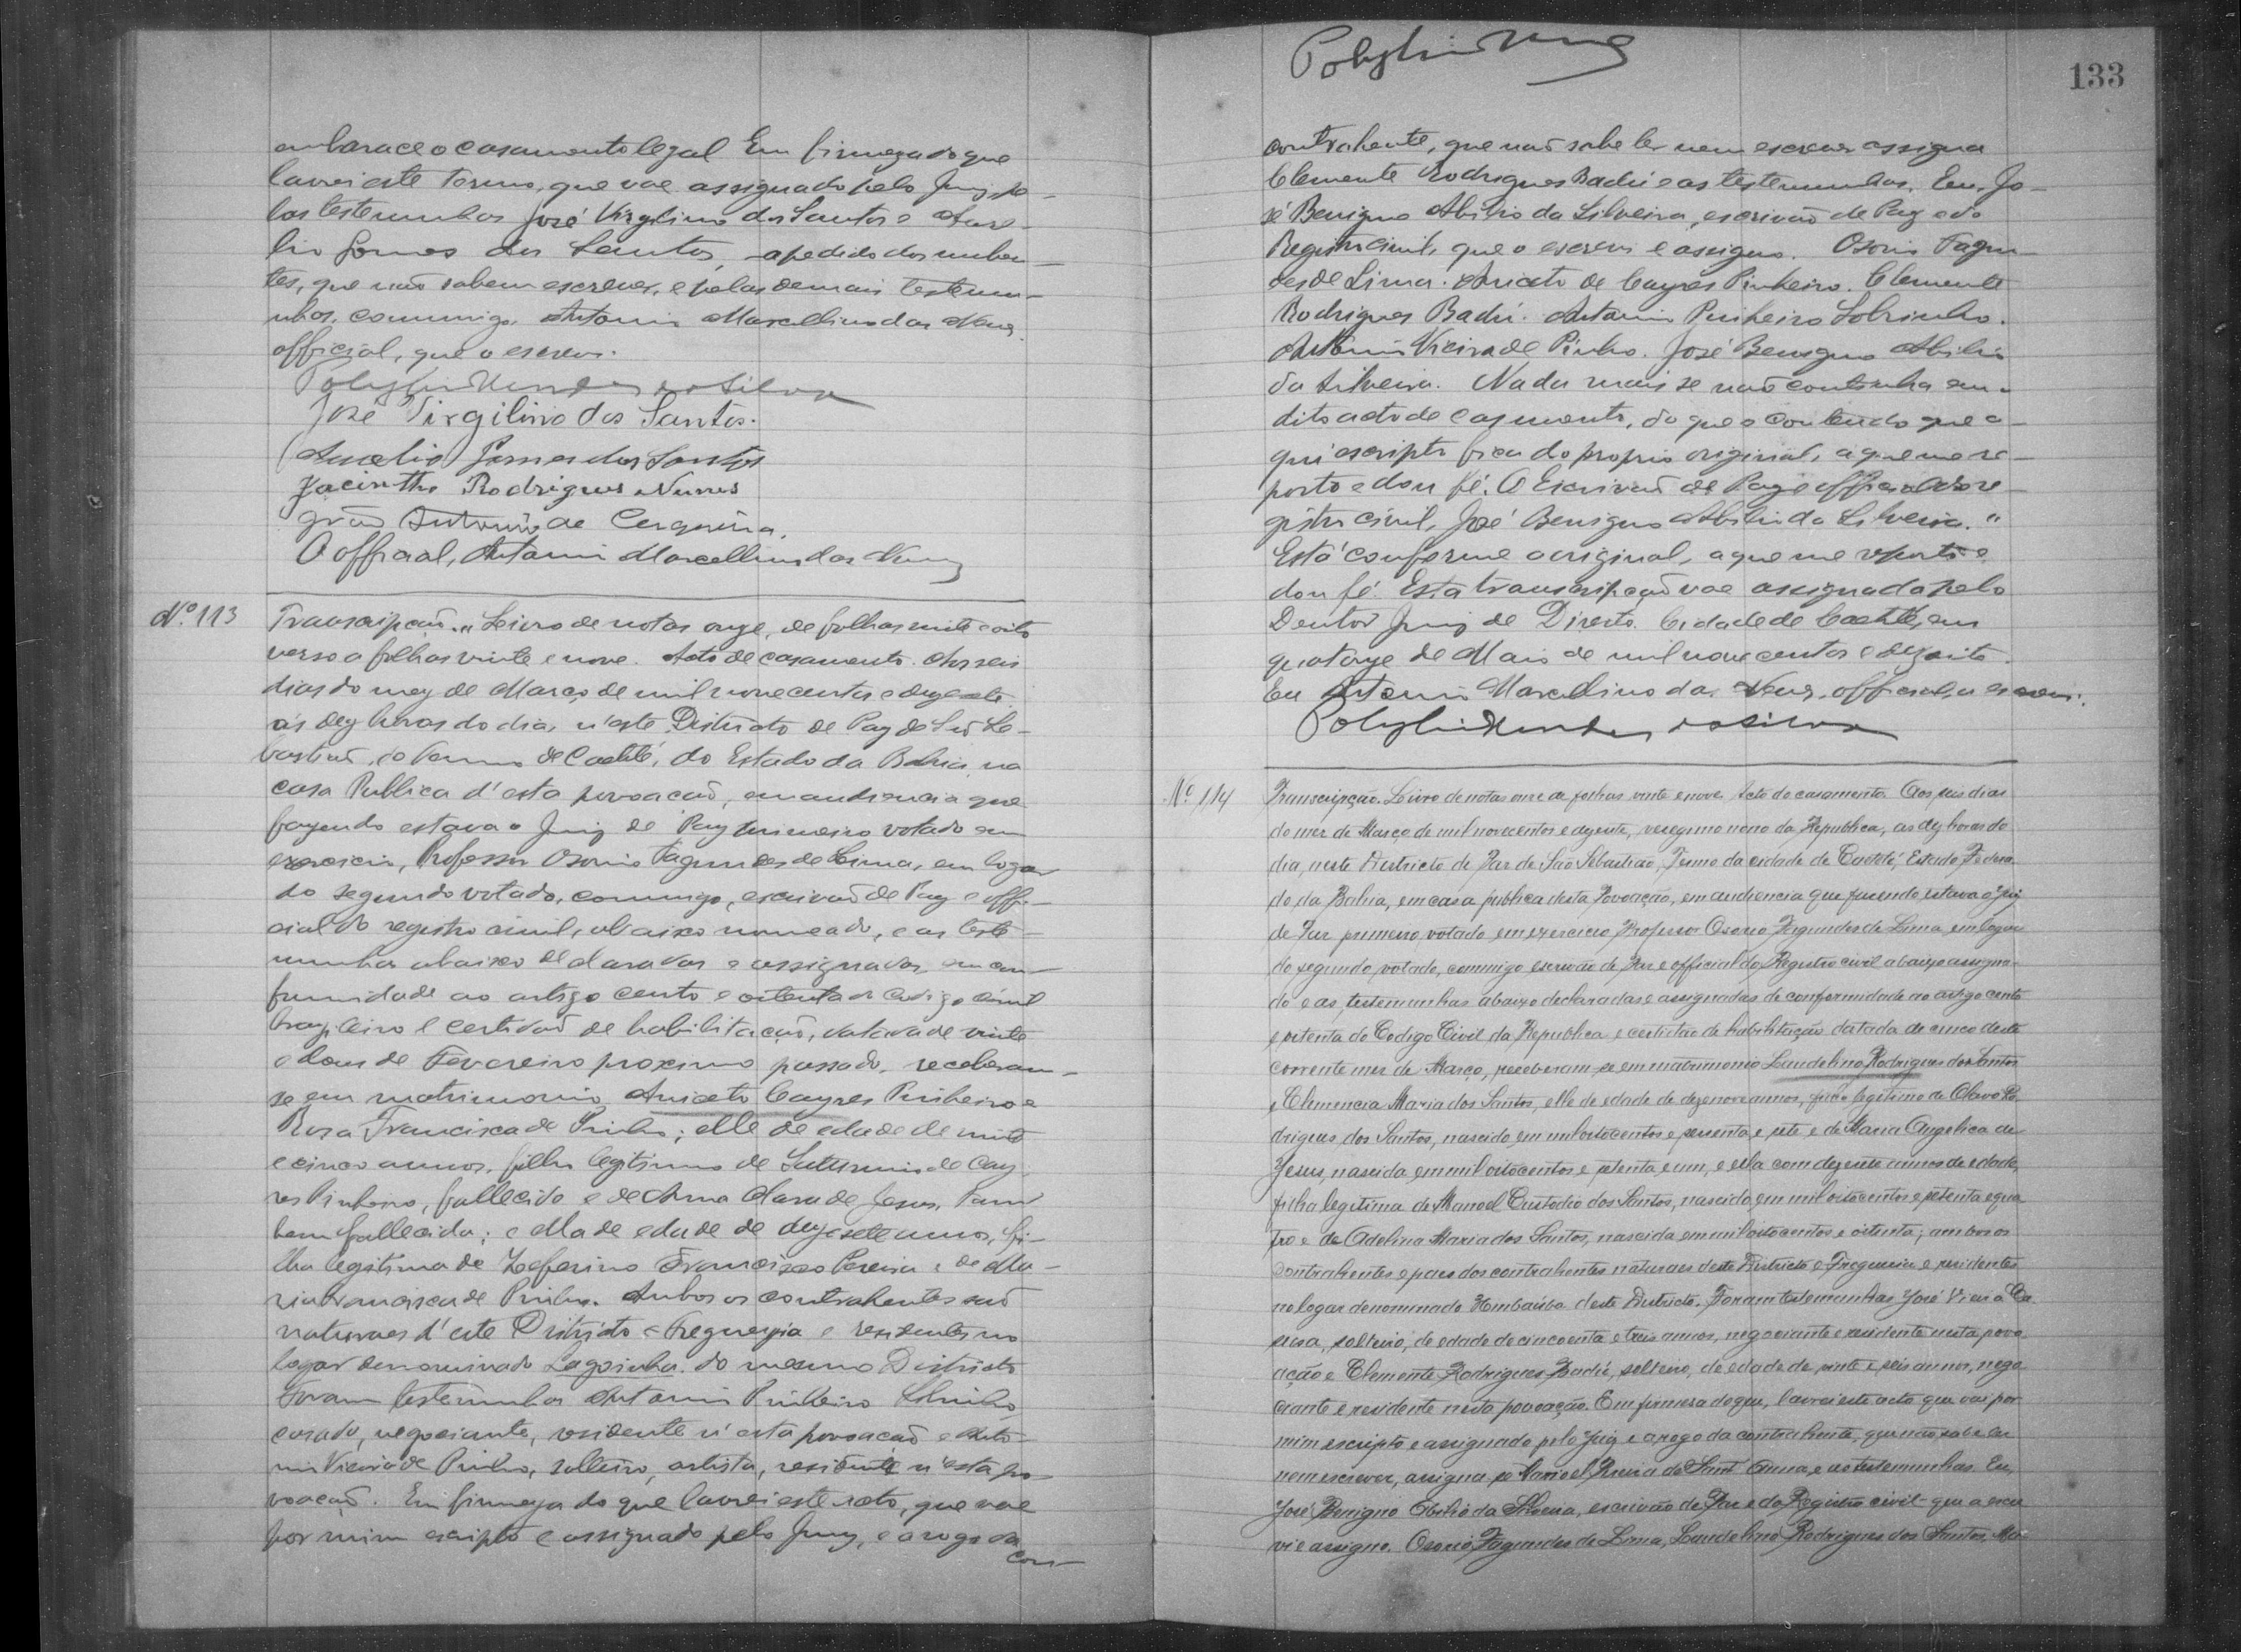 embarace o casamento legal Em firmeza do que
lavrei este termo, que vae assignado pelo Juiz, pe-
las testemunhas José Virgilino dos Santos e Aure-
lio Gomes dos Santos, a pedido dos nuben-
tes, que não sabem escrever, e pelas demais testemu-
nhas, commigo, Antonio Marcellino das Neves
official, que o escrevi.
José Virgilino dos Santos.
Aurelio Gomes dos Santos
Jacintho Rodrigues Nunes
João Antonio de Cerqueira.
O official, Antonio Marcellino das Neves
Nº 113
Transcripção. "Livro de notas onze, de folhas vinte e oito
verso a folhas vinte e nove. Acto de casamento. Aos seis
dias do mez de Março de mil novecentos e dezesete
ás dez horas do dia, n'este Districto de Paz de São Se-
bastião, do Termo de Caetité, do Estado da Bahia, na
casa Publica d'esta povoação, em audiencia que
fazendo estava o Juiz de Paz primeiro votado em
exercicio, Professor Osorio Fagundes de Lima, em logar
do segundo votado, commigo, escrivão de Paz e offi-
cial do registro civil, abaixo nomeado, e as teste-
munhas abaixo declaradas e assignadas, em con-
formidade ao artigo cento e oitenta do Codigo Civil
brazileiro e certidão de habilitação, datada de vinte
e dous de Fevereiro proximo passado, receberam-
se em matrimonio Aniceto Cayres Pinheiro e
Rosa Francisca de Pinho; elle de edade de vinte
e cinco annos, filho legitimo de Saturnino de Cay-
res Pinheiro, fallecido e de Anna Clara de Jesus, tam-
bem fallecida; e ella de edade de dezesete annos, fi-
lha legitima de Zeferino Francisco Pereira e de Ma-
ria Francisca de Pinho. Ambos os contrahentes são
naturaes d'este Districto e Freguezia e residentes no
logar denominado Lagoinha do mesmo Districto
Foram testemunhas Antonio Pinheiro Sobrinho,
casado, negociante, residente n'esta povoação e Anto-
nio Vieira de Pinho, solteiro, artista, residente n'esta po-
voação. Em firmeza do que lavrei este acto, que vae
por mim escripto e assignado pelo Juiz, e a rogo da
con-
133
contrahente, que não sabe ler nem escrever assigna
Clemente Rodrigues Badú e as testemunhas. Eu, Jo-
sé Benigno Abilio da Silveira, escrivão de Paz e do
Registro civil, que o escrevi e assigno. Osorio Fagun-
des de Lima. Aniceto de Cayres Pinheiro. Clemente
Rodrigues Badú. Antonio Pinheiro Sobrinho.
Antonio Vieira de Pinho. José Benigno Abilio
da Silveira. Nada mais se não continha em
dito acto de casamento, do que o contendo que a-
qui escripto fica do proprio original, a que me re-
porto e dou fé. O Escrivão de Paz e official do re-
gistro civil, José Benigno Abilio da Silveira."
Está conforme o original, a que me reporto e
dou fé. Esta transcripção vae assignada pelo
Doutor Juiz de Direito. Cidade de Caetité, em
quatorze de Maio de mil novecentos e dezoito.
Eu Antonio Marcellino das Neves, official, o escrevi.
Nº 114
Transcripção. Livro de notas onze de folhas vinte e nove. Acto de casamento. Aos seis dias
do mez de Março de mil novecentos e dezesete, vegesimo nono da Republica, as dez horas do
dia, neste Districto de Paz de São Sebastião, Termo da cidade de Caetité, Estado Federa-
do da Bahia, em casa publica desta Povoação, em audiencia que fazendo estava o Juiz
de Paz primeiro votado em exercicio Professor Osorio Fagundes de Lima, em logar
do segundo votado, commigo escrivão de Paz e official do Registro civil abaixo assigna-
do e as testemunhas abaixo declaradas e assignadas de conformidade ao artigo cento
e oitenta do Codigo Civil da Republica e certidão de habilitação datada de cinco deste
corrente mez de Março, receberam-se em matrimonio Laudelino Rodrigues dos Santos
e Clemencia Maria dos Santos, elle de edade de dezenove annos, filho legitimo de Olavo Ro-
drigues dos Santos, nascido em mil oitocentos e sessenta e sete e de Maria Angelica de
Jesus, nascida em mil oitocentos e setenta e um, e ella com dezesete annos de edade,
filha legitima de Manoel Custodio dos Santos, nascido em mil oitocentos e setenta e qua-
tro e de Adelina Maria dos Santos, nascida em mil oitocentos e oitenta; ambos os
contrahentes e paes dos contrahentes naturaes deste Districto e Freguezia e residentes
no logar denominado deste Districto. Foram testemunhas José Vieira
solteiro, de edade de cincoenta e tres annos, negociante e residente nesta povo-
ação e Clemente Rodrigues Badú, solteiro, de edade de vinte e seis annos, nego-
ciante e residente nesta povoação. Em firmeza do que, lavrei este acto que vai por
mim escripto e assignado pelo Juiz e a rogo da contrahente, que não sabe ler
nem escrever, assigna-se Manoel Pereira de Sant'Anna, e as testemunhas. Eu,
José Benigno Abilio da Silveira, escrivão de Paz e do Registro civil que a escre-
vi e assigno. Osorio Fagundes de Lima, Laudelino Rodrigues dos Santos, Ma-